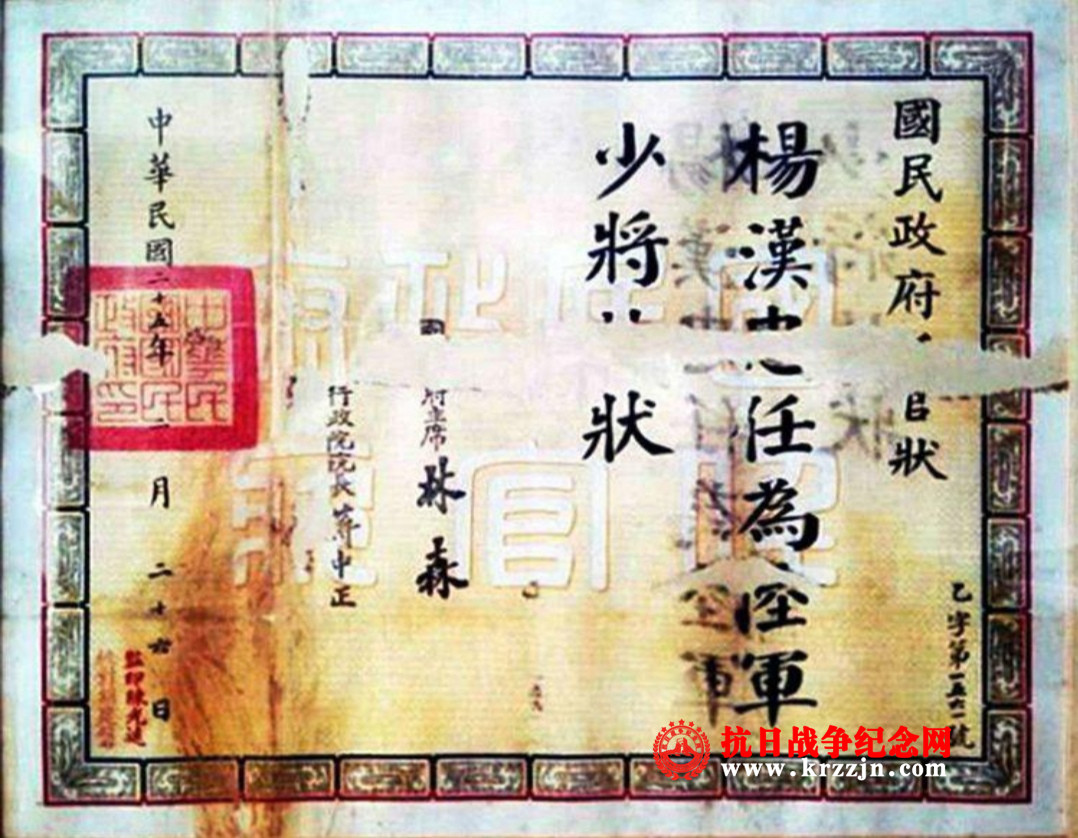 國民政府官狀
乙字第一五六一號
楊漢任為空軍
少將狀
府主席 林森
行政院院長蔣中正
中華民國二十五年二月二十六日
中華民國國民政府印
監印陳光遠
抗日战争纪念网
www.krzzjn.com